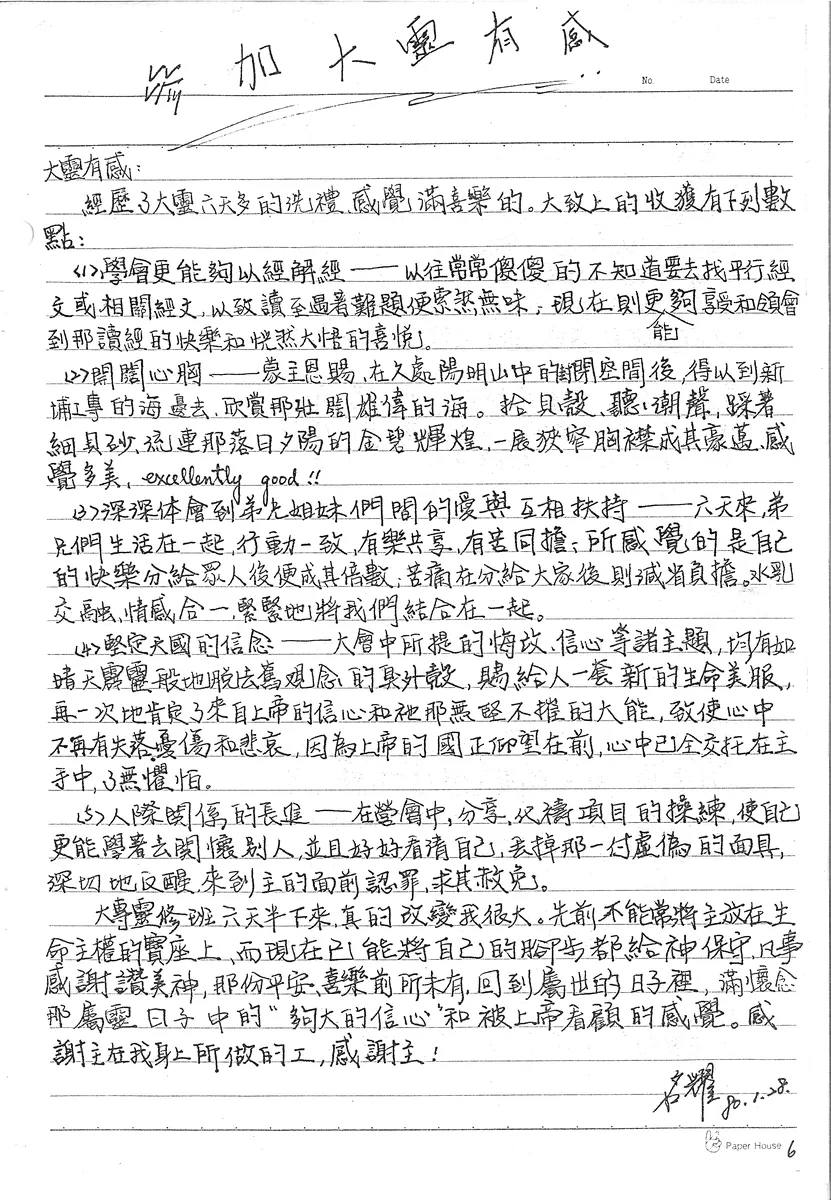 參加大靈有感
No. Date
大靈有感:
經歷了大靈六天多的洗禮、感覺滿喜樂的。大致上的收獲有下列數
點:
(1)學會更能夠以經解經——以往常常傻傻的不知道要去找平行經
文或相關經文,以致讀至過著難題便索然無味;現在則更能夠享受和領會
到那讀經的快樂和恍然大悟的喜悅。
(2)開闊心胸——蒙主恩賜、在久處陽明山中的封閉空間後,得以到新
埔工專的海邊去、欣賞那壯闊雄偉的海。拾貝殼、聽潮聲,踩著
細貝砂、流連那落日夕陽的金碧輝煌、一展狹窄胸襟成其豪邁、感
覺多美, excellently good!!
(3)深深体會到弟兄姐妹們間的愛與互相扶持——六天來,弟
兄們生活在一起,行動一致,有樂共享、有苦同擔;所感覺的是自己
的快樂分給眾人後便成其倍數;苦痛在分給大家後則減省負擔。水乳
交融、情感合一、緊緊地將我們結合在一起。
(4)堅定天國的信念——大會中所提的悔改、信心等諸主題,均有如
晴天霹靂般地脫去舊觀念的臭外殼,賜給人一套新的生命美服,
再一次地肯定了來自上帝的信心和祂那無堅不摧的大能,致使心中
不再有失落、憂傷和悲哀,因為上帝的國正仰望在前,心中已全交托在主
手中,了無懼怕。
(5)人際關係的長進——在營會中,分享、代禱項目的操練,使自己
更能學著去關懷別人,並且好好看清自己,丟掉那一付虛偽的面具,
深切地反醒、來到主的面前認罪,求其赦免。
大專靈修班六天半下來,真的改變我很大。先前不能常將主放在生
命主權的寶座上、而現在已能將自己的腳步都給神保守、凡事
感謝讚美神,那份平安、喜樂前所未有、回到屬世的日子裡,滿懷念
那屬靈日子中的“夠大的信心”和被上帝看顧的感覺。感
謝主在我身上所做的工,感謝主!
名耀 80.1.28.
Paper House 6